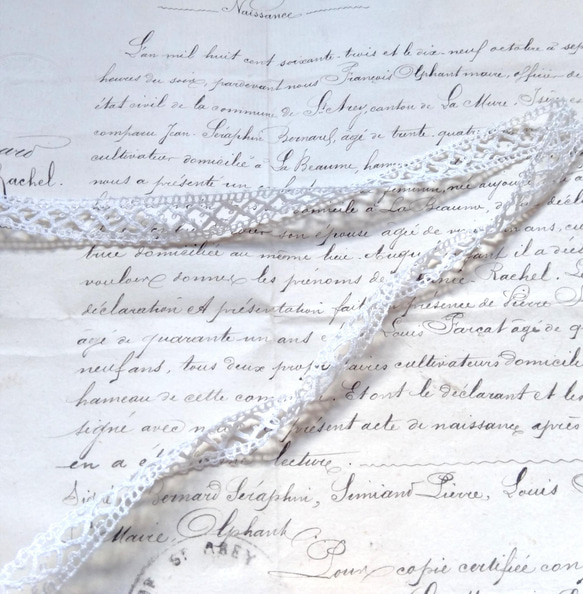 Naissance
L'an mil huit cent soixante-trois et le dix-neuf octobre à sep
heures du soir, pardevant nous François Olphant maire, officier de
état civil de la commune de St Arey, canton de La Mure, Isère
comparu Jean Séraphin Bernard, âgé de trente quatre
cultivateur domicilié à La Beaume,
Rachel.
nous a présenté un féminin, née aujourd
domicile à La Beaume, déclar
son épouse âgée de ans, cu
trice domiciliée au même lieu. Auquel il a déc
vouloir donner les prénoms de Rachel. L
déclaration et présentation fait présence de Pierre
âgé de quarante un ans Louis Farçat âgé de q
neuf ans, tous deux propriétaires cultivateurs domicilié
hameau de cette commune. Et ont le déclarant et les
signé avec nous présent acte de naissance après
en a été lecture.
Signé Bernard Séraphin, Simiand Pierre, Louis
Maire, Olphant.
ST AREY
Pour copie certifiée con